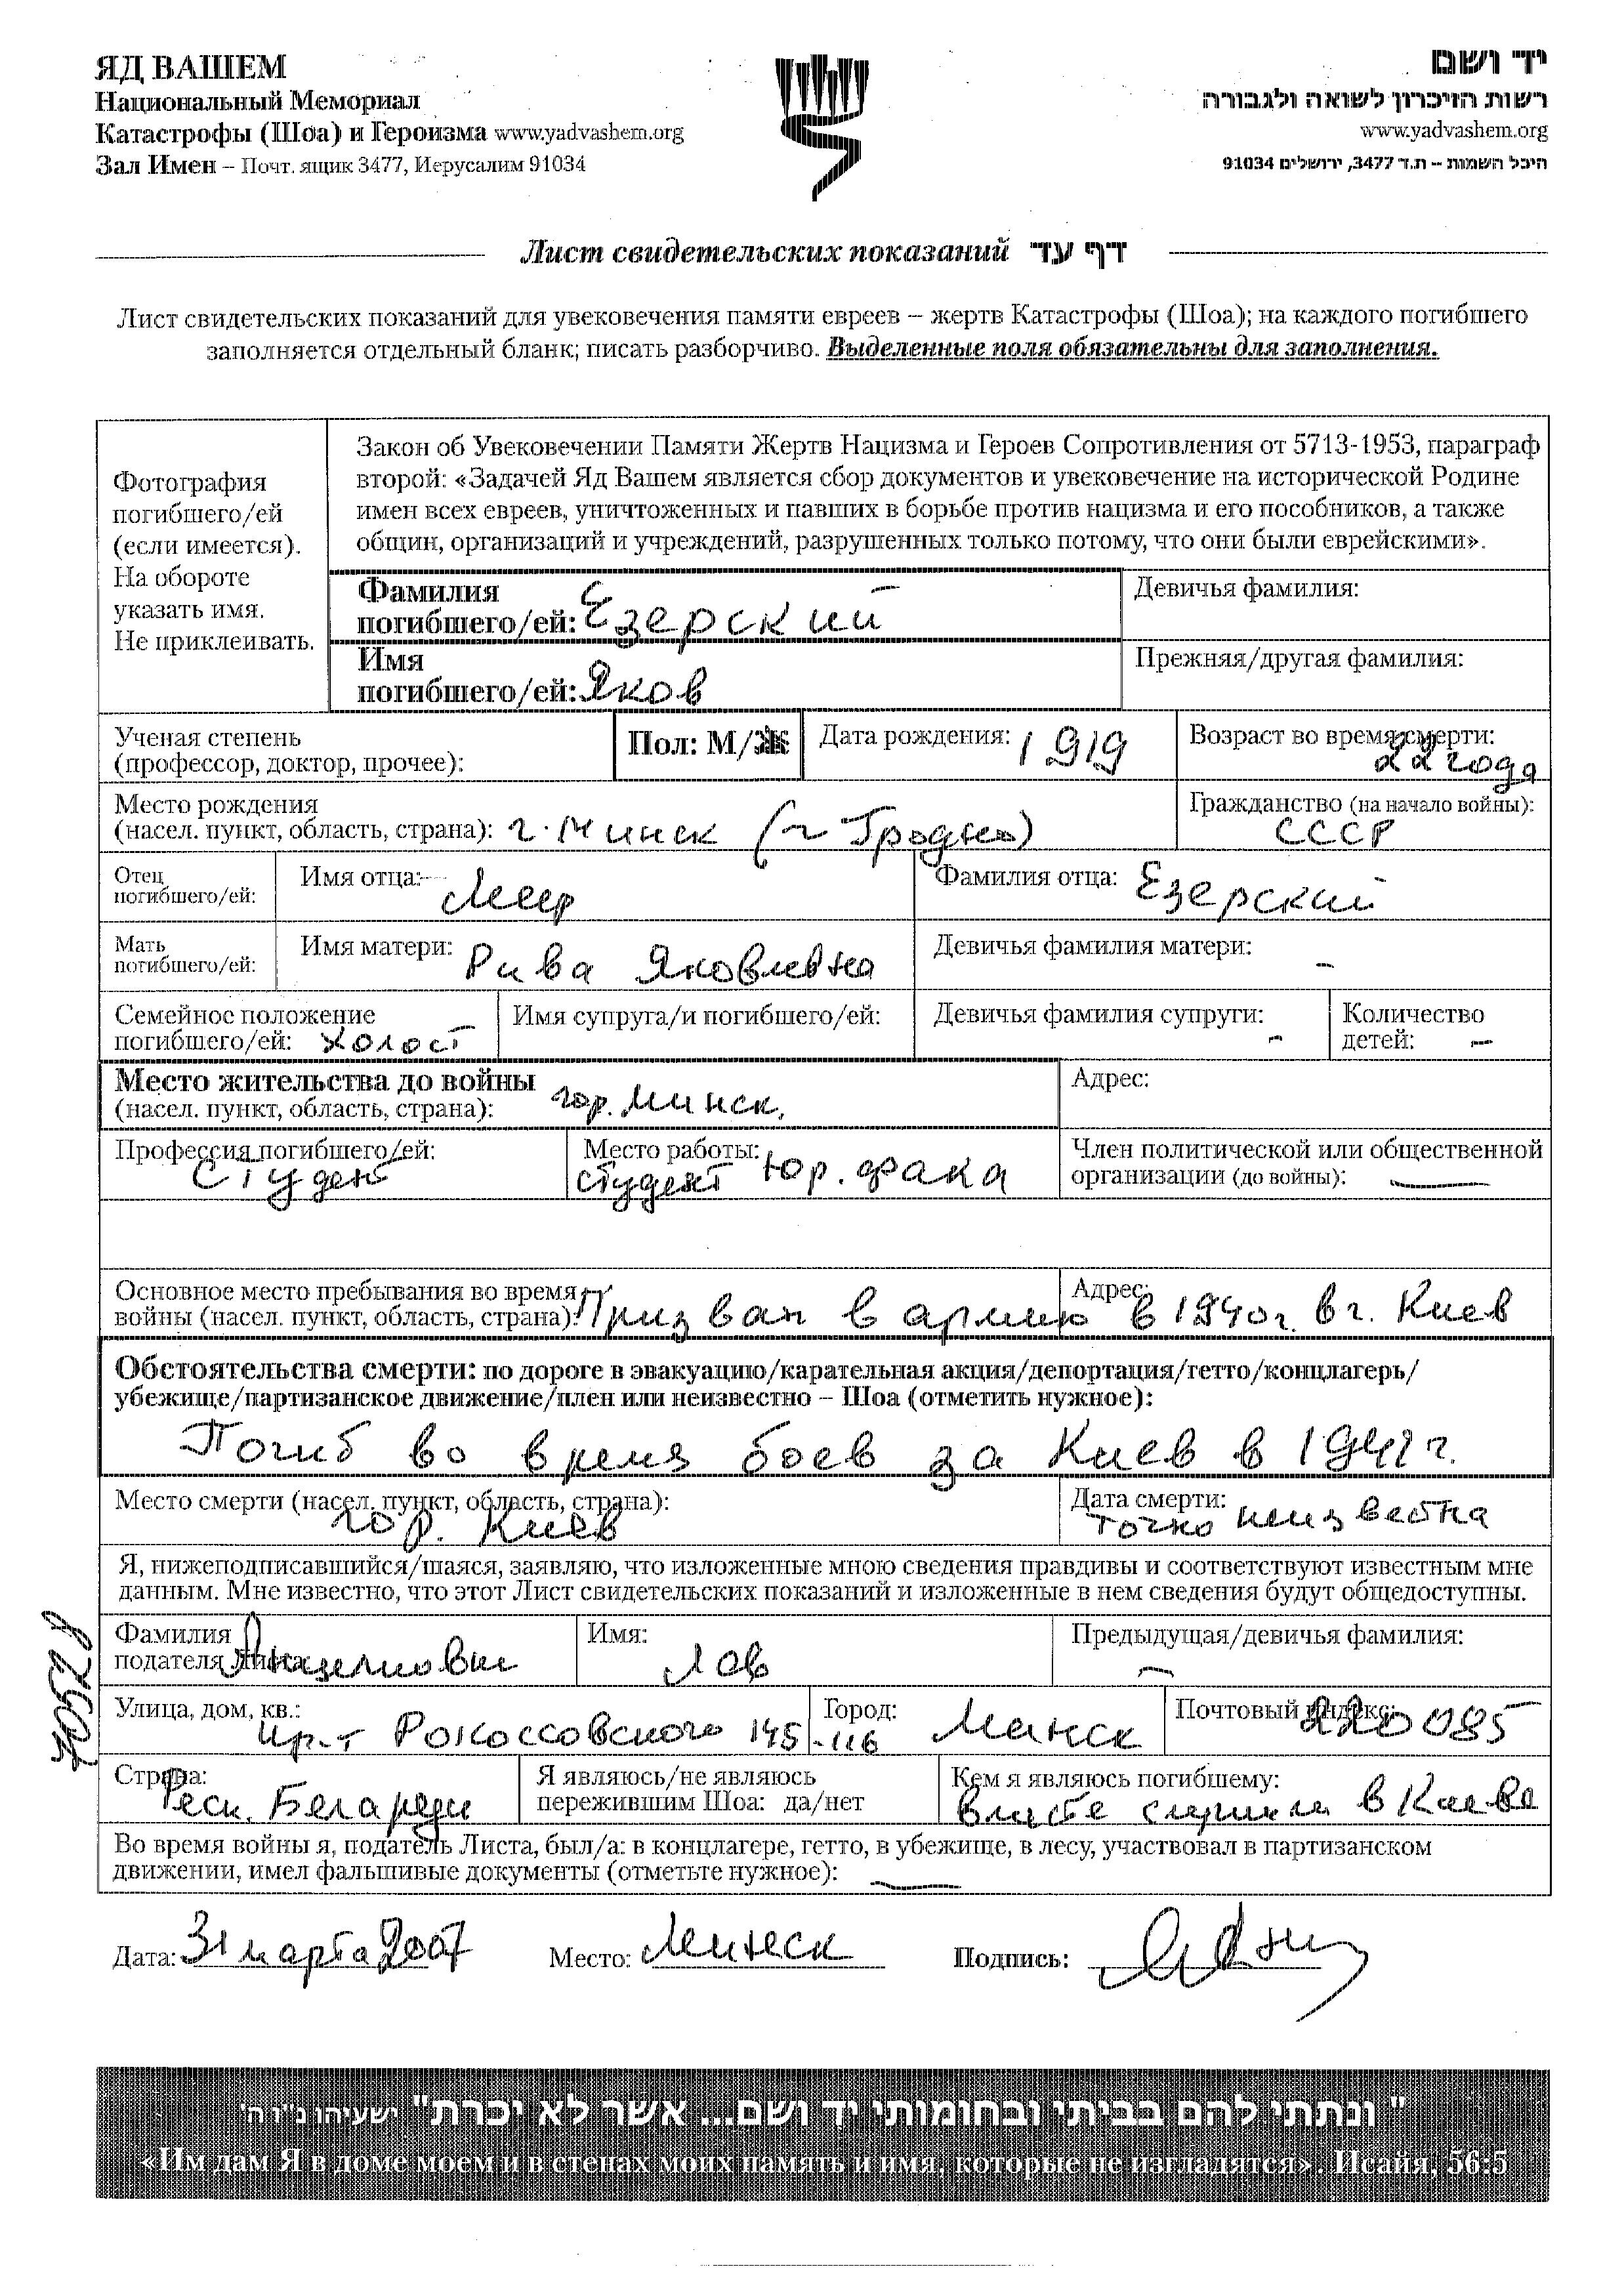 ЯД ВАШЕМ
Национальный Мемориал
Катастрофы (Шоа) и Героизма www.yadvashem.org
Зал Имен – Почт. ящик 3477, Иерусалим 91034
יד ושם
רשות הזיכרון לשואה ולגבורה
www.yadvashem.org
היכל השמות – ת.ד 3477, ירושלים 91034
Лист свидетельских показаний דף עד
Лист свидетельских показаний для увековечения памяти евреев – жертв Катастрофы (Шоа); на каждого погибшего
заполняется отдельный бланк; писать разборчиво. Выделенные поля обязательны для заполнения.
Фотография
погибшего/ей
(если имеется).
На обороте
указать имя.
Не приклеивать.
Закон об Увековечении Памяти Жертв Нацизма и Героев Сопротивления от 5713-1953, параграф
второй: «Задачей Яд Вашем является сбор документов и увековечение на исторической Родине
имен всех евреев, уничтоженных и павших в борьбе против нацизма и его пособников, а также
общин, организаций и учреждений, разрушенных только потому, что они были еврейскими».
Фамилия
погибшего/ей: Езерский
Девичья фамилия:
Имя
погибшего/ей: Яков
Прежняя/другая фамилия:
Ученая степень
(профессор, доктор, прочее):
Пол: М/Ж
Дата рождения: 1919
Возраст во время смерти:
22 года
Место рождения
(насел. пункт, область, страна): г. Минск (г Гродно)
Гражданство (на начало войны):
СССР
Отец
погибшего/ей:
Имя отца: Меер
Фамилия отца: Езерский
Мать
погибшего/ей:
Имя матери: Рива Яковлевна
Девичья фамилия матери: –
Семейное положение
погибшего/ей: холост
Имя супруга/и погибшего/ей:
Девичья фамилия супруги: –
Количество
детей: –
Место жительства до войны
(насел. пункт, область, страна): гор. Минск.
Адрес:
Профессия погибшего/ей:
Студент
Место работы:
студент юр. фака
Член политической или общественной
организации (до войны): —
Основное место пребывания во время
войны (насел. пункт, область, страна): Призван в армию в 1940г. в г. Киев
Адрес:
Обстоятельства смерти: по дороге в эвакуацию/карательная акция/депортация/гетто/концлагерь/
убежище/партизанское движение/плен или неизвестно – Шоа (отметить нужное):
Погиб во время боев за Киев в 1941 г.
Место смерти (насел. пункт, область, страна):
гор. Киев
Дата смерти:
точно неизвестна
Я, нижеподписавшийся/шаяся, заявляю, что изложенные мною сведения правдивы и соответствуют известным мне
данным. Мне известно, что этот Лист свидетельских показаний и изложенные в нем сведения будут общедоступны.
Фамилия
подателя Листа:
Имя:
Предыдущая/девичья фамилия:
–
Улица, дом, кв.:
пр-т Рокоссовского 145-116
Город: Минск
Почтовый индекс:
220085
Страна:
Респ. Беларусь
Я являюсь/не являюсь
пережившим Шоа: да/нет
Кем я являюсь погибшему:
вместе служили в Киеве
Во время войны я, податель Листа, был/а: в концлагере, гетто, в убежище, в лесу, участвовал в партизанском
движении, имел фальшивые документы (отметьте нужное): —
Дата: 31 марта 2007
Место: Минск
Подпись:
"ונתתי להם בביתי ובחומותי יד ושם... אשר לא יכרת" ישעיהו נ"ו ה'
«Им дам Я в доме моем и в стенах моих память и имя, которые не изгладятся». Исайя, 56:5